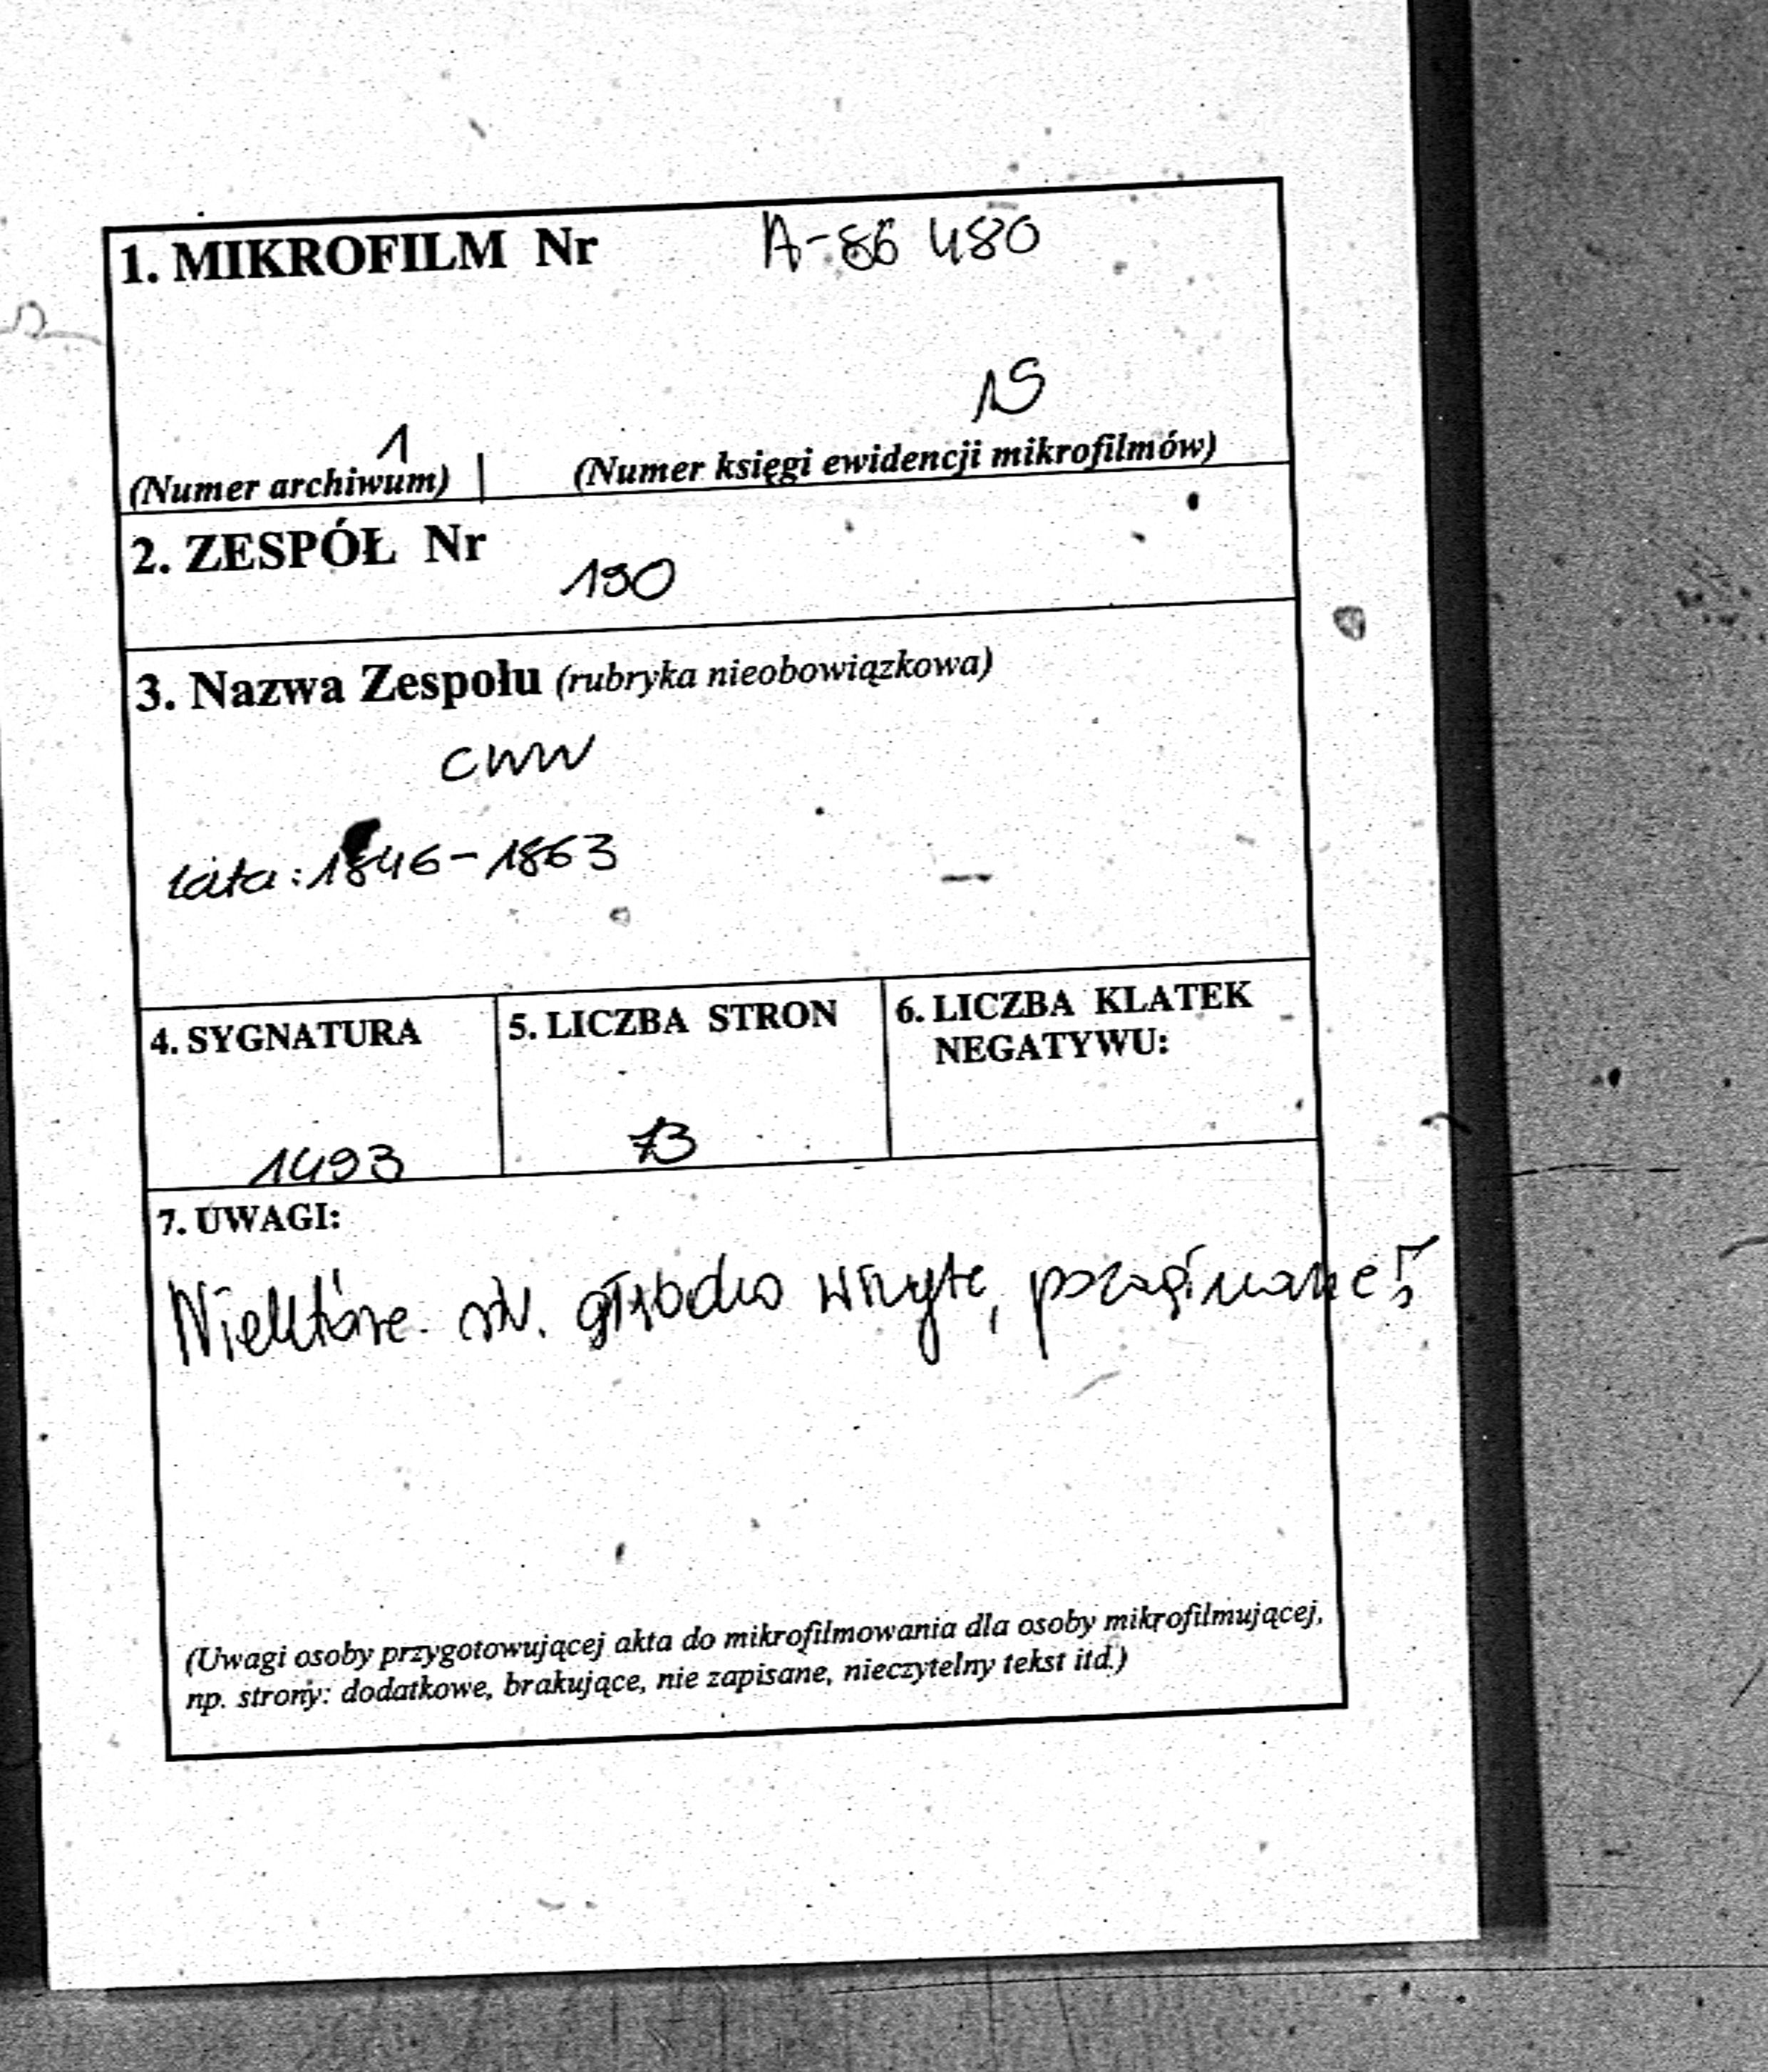 1. MIKROFILM Nr A-86 480
1 15
(Numer archiwum) | (Numer księgi ewidencji mikrofilmów)
2. ZESPÓŁ Nr
190
3. Nazwa Zespołu (rubryka nieobowiązkowa)
CWW
lata: 1846-1863
4. SYGNATURA 5. LICZBA STRON 6. LICZBA KLATEK
NEGATYWU:
1493 73
7. UWAGI:
Niektóre str. głęboko wszyte, pozaginane!
(Uwagi osoby przygotowującej akta do mikrofilmowania dla osoby mikrofilmującej,
np. strony: dodatkowe, brakujące, nie zapisane, nieczytelny tekst itd.)